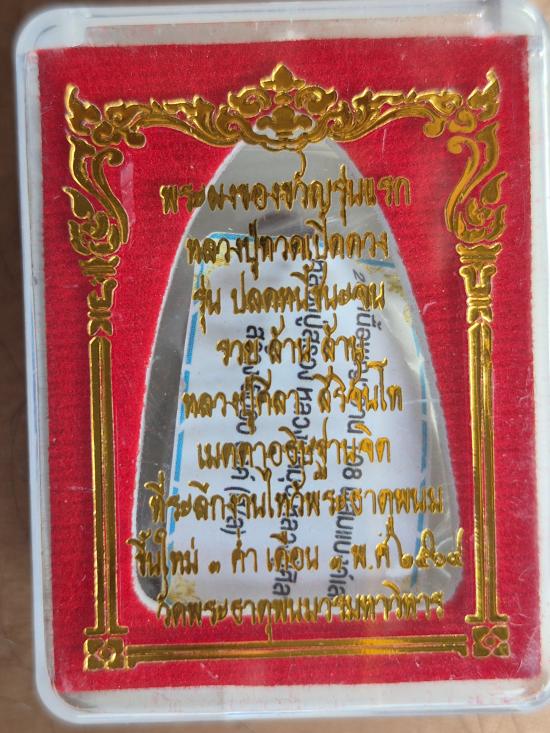 พระผงของขวัญรุ่นแรก
หลวงปู่ทวดเปิดดวง
รุ่น ปลดหนี้ชนะจน
รวย ล้าน ล้าน
หลวงปู่ศิลา สิริจันโท
เมตตาอธิษฐานจิต
ที่ระลึกงานไหว้พระธาตุพนม
ขึ้นใหม่ ๓ ค่ำ เดือน ๓ พ.ศ ๒๕๖๔
วัดพระธาตุพนมวรมหาวิหาร